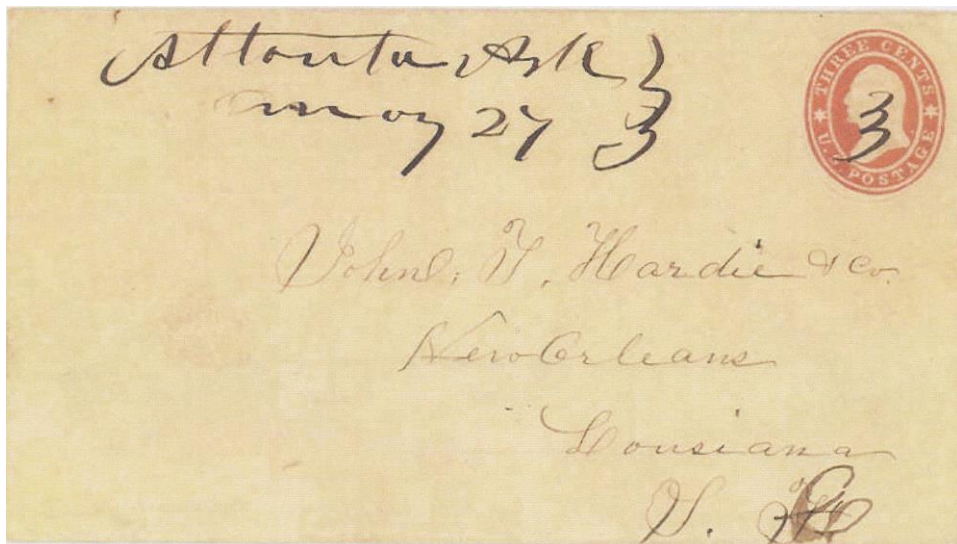 Attanta Ark }
may 27 3
THREE CENTS
U.S. POSTAGE
3
John. T. Hardie & Co.
New Orleans
Lousiana